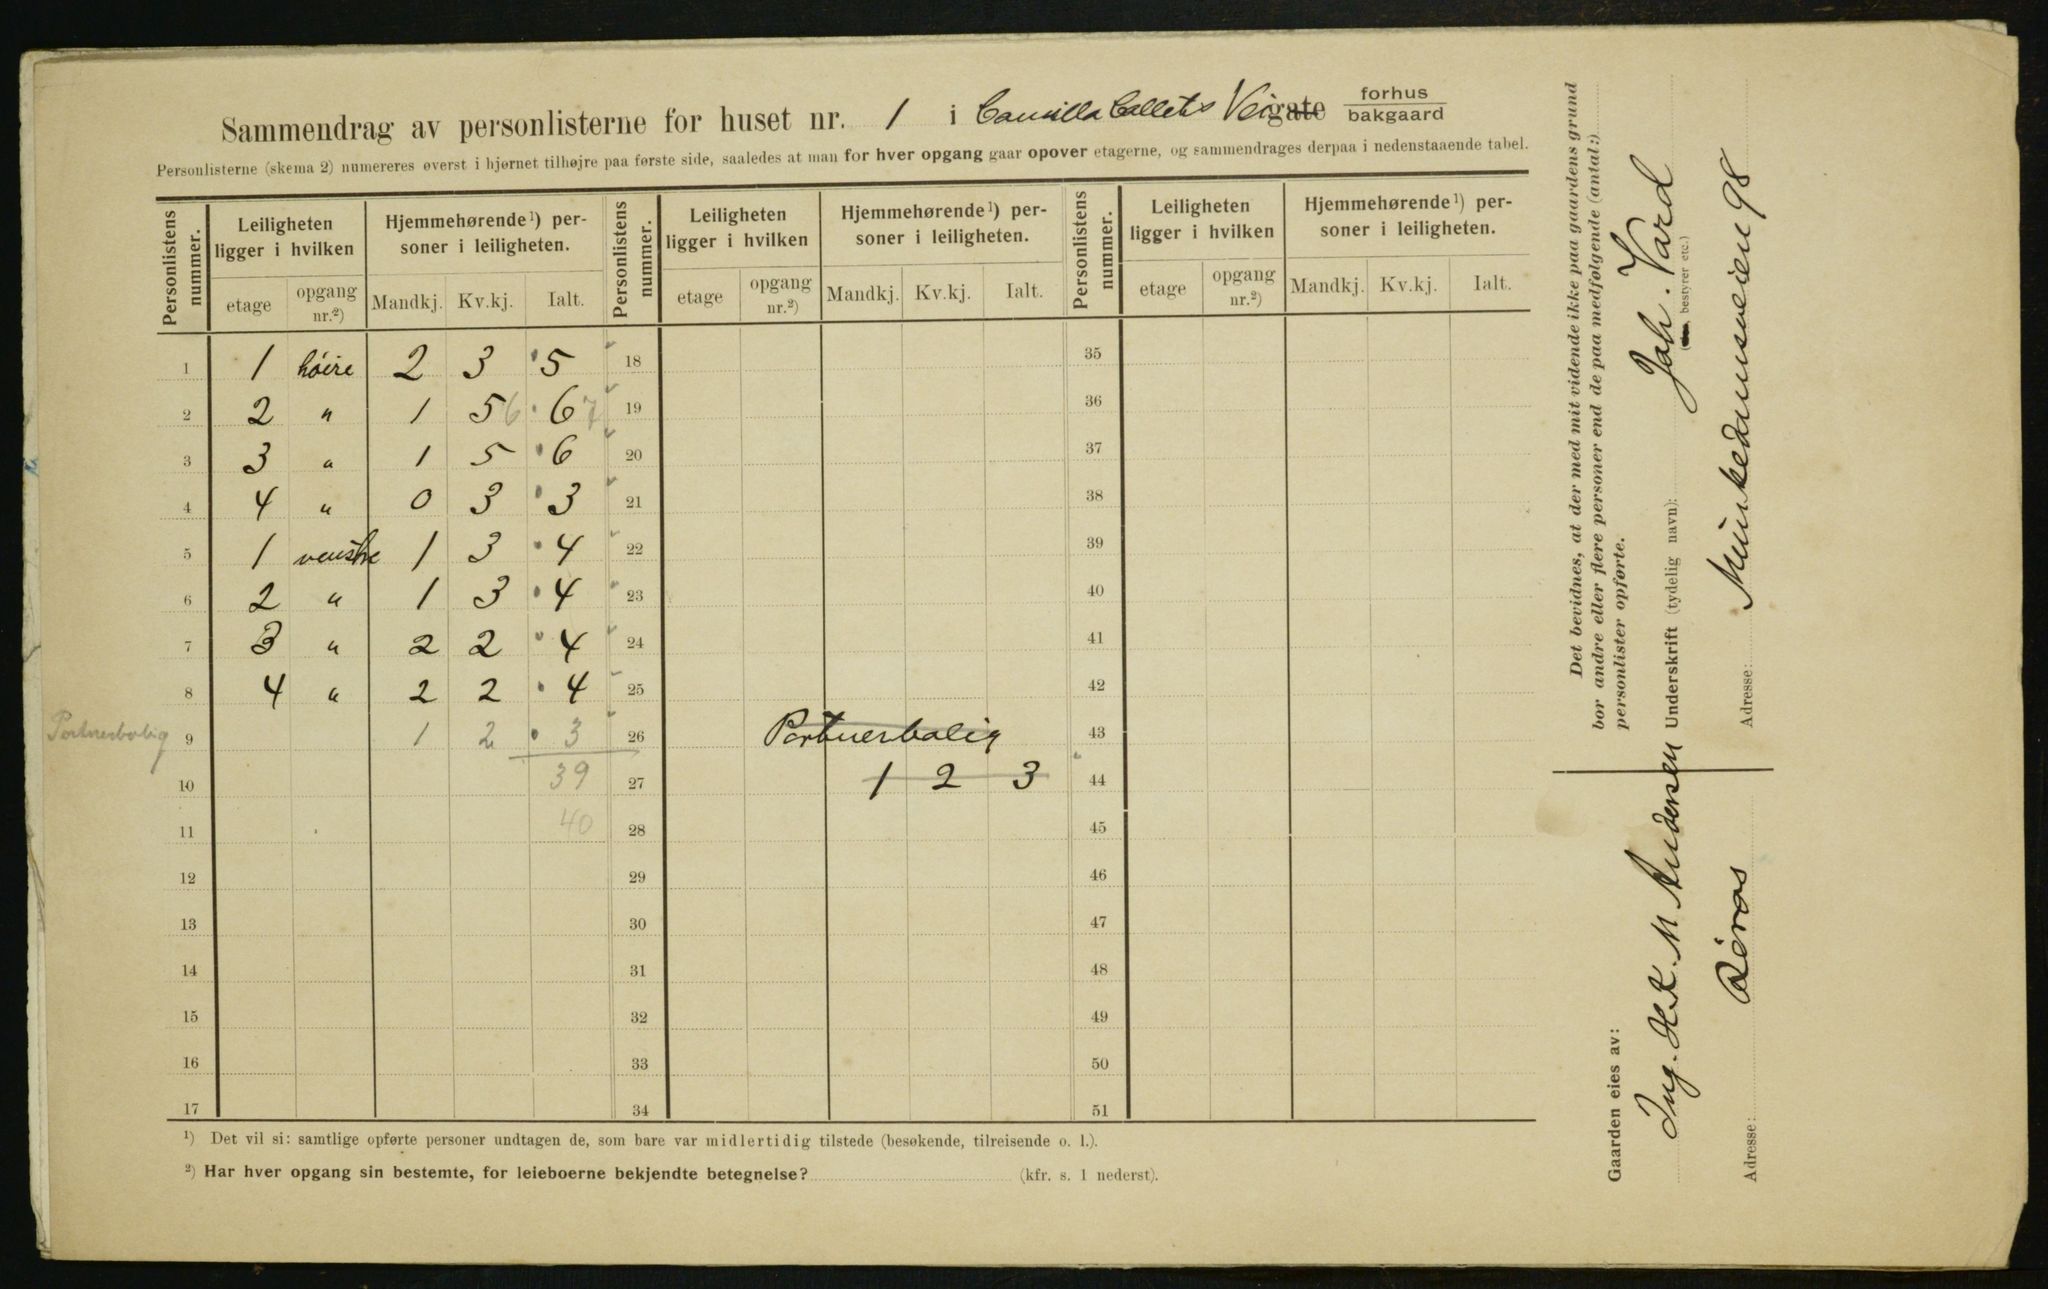 Sammendrag av personlisterne for huset nr. 1 i Camilla Colletts Veigate forhus bakgaard
Personlisterne (skema 2) numereres øverst i hjørnet tilhøjre paa første side, saaledes at man for hver opgang gaar opover etagerne, og sammendrages derpaa i nedenstaaende tabel.
Personlistens nummer. Leiligheten ligger i hvilken Hjemmehørende¹) personer i leiligheten. Personlistens nummer. Leiligheten ligger i hvilken Hjemmehørende¹) personer i leiligheten. Personlistens nummer. Leiligheten ligger i hvilken Hjemmehørende¹) personer i leiligheten.
etage opgang nr.²) Mandkj. Kv.kj. Ialt. etage opgang nr.²) Mandkj. Kv.kj. Ialt. etage opgang nr.²) Mandkj. Kv.kj. Ialt.
1 1 høire 2 3 5 18 35
2 2 " 1 5 6 6 7 19 36
3 3 " 1 5 6 20 37
4 4 " 0 3 3 21 38
5 1 venstre 1 3 4 22 39
6 2 " 1 3 4 23 40
7 3 " 2 2 4 24 41
8 4 " 2 2 4 25 42
Portnerbolig 9 1 2 3 26 Portnerbolig 43
10 39 27 1 2 3 44
11 40 28 45
12 29 46
13 30 47
14 31 48
15 32 49
16 33 50
17 34 51
¹) Det vil si: samtlige opførte personer undtagen de, som bare var midlertidig tilstede (besøkende, tilreisende o. l.).
²) Har hver opgang sin bestemte, for leieboerne bekjendte betegnelse? (kfr. s. 1 nederst).
Det bevidnes, at der med mit vidende ikke paa gaardens grund
bor andre eller flere personer end de paa medfølgende (antal:)
personlister opførte.
Underskrift (tydelig navn): Joh. Vard
(bestyrer etc.)
Adresse: Munkedamsveien 98
Gaarden eies av:
Ing. M. Andersen
Adresse: Røros